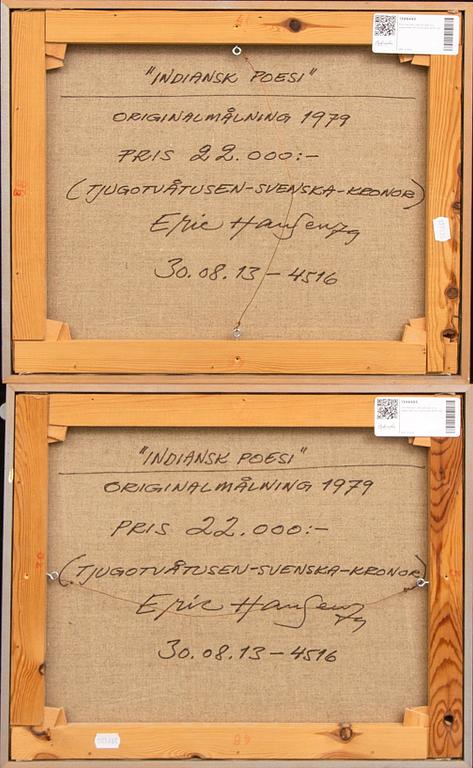 "INDIANSK POESI"
ORIGINALMÅLNING 1979
PRIS 22.000:-
(TJUGOTVÅTUSEN-SVENSKA-KRONOR)
Eric Hansen79
30.08.13-4516
"INDIANSK POESI"
ORIGINALMÅLNING 1979
PRIS 22.000:-
(TJUGOTVÅTUSEN-SVENSKA-KRONOR)
Eric Hansen79
30.08.13-4516